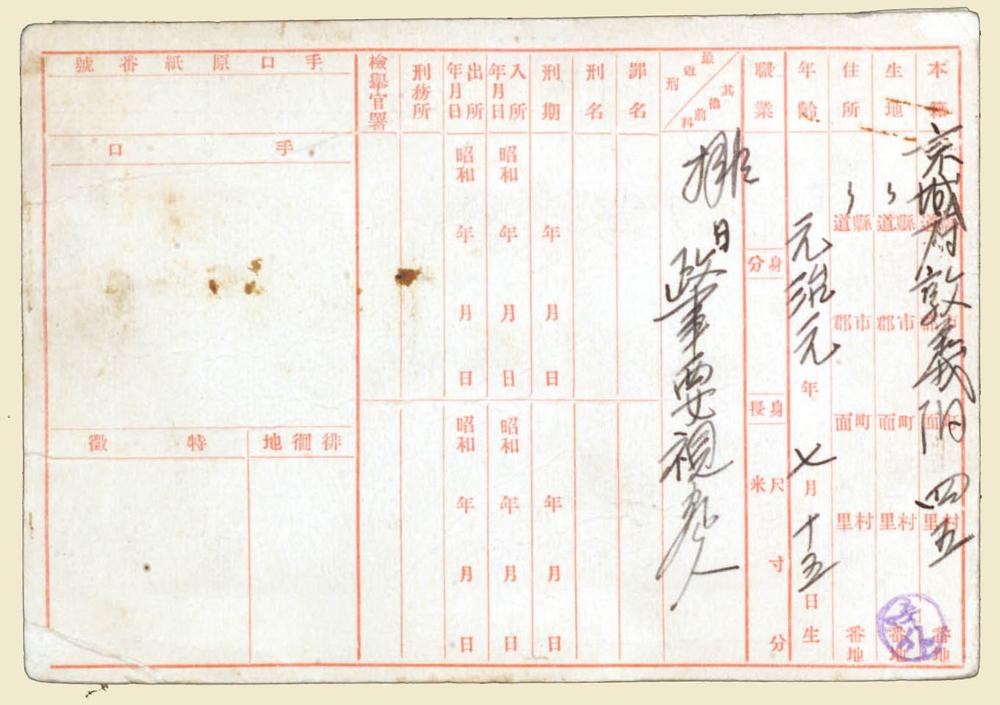 本籍 京城府敦義洞 四五
道縣 郡市 面町 里村 番地
生地 〻
道縣 郡市 面町 里村 番地
住所 〻
道縣 郡市 面町 里村 番地
年齡 元治元年七月十五日生
職業
身分
身長 尺米 寸 分
最近刑 其他前科
排日 政事要視察人
罪名
刑名
刑期
年 月 日
年 月 日
入所年月日
昭和 年 月 日
昭和 年 月 日
出所年月日
昭和 年 月 日
昭和 年 月 日
刑務所
檢擧官署
手口原紙番號
手口
徘徊地
特徵